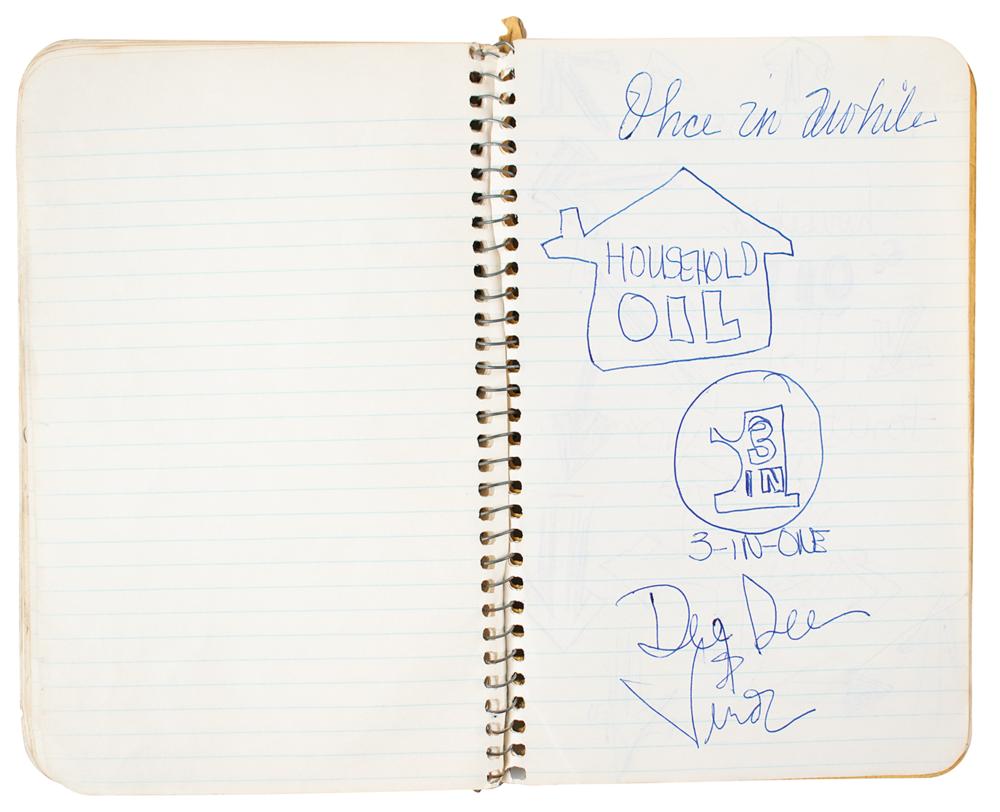 Once in Awhile
HOUSEHOLD
OIL
3
IN
1
3-IN-ONE
Dee Dee
&